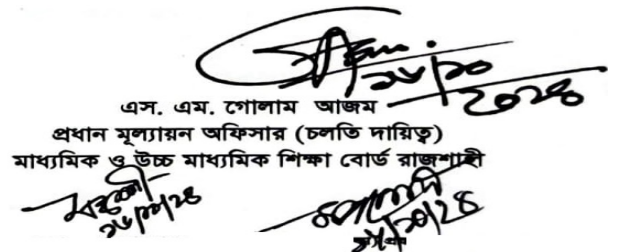 ১৬/১০
২০২৪
এস. এম. গোলাম আজম
প্রধান মূল্যায়ন অফিসার (চলতি দায়িত্ব)
মাধ্যমিক ও উচ্চ মাধ্যমিক শিক্ষা বোর্ড রাজশাহী
১৬/১০/২৪ ১৬/১০/২৪